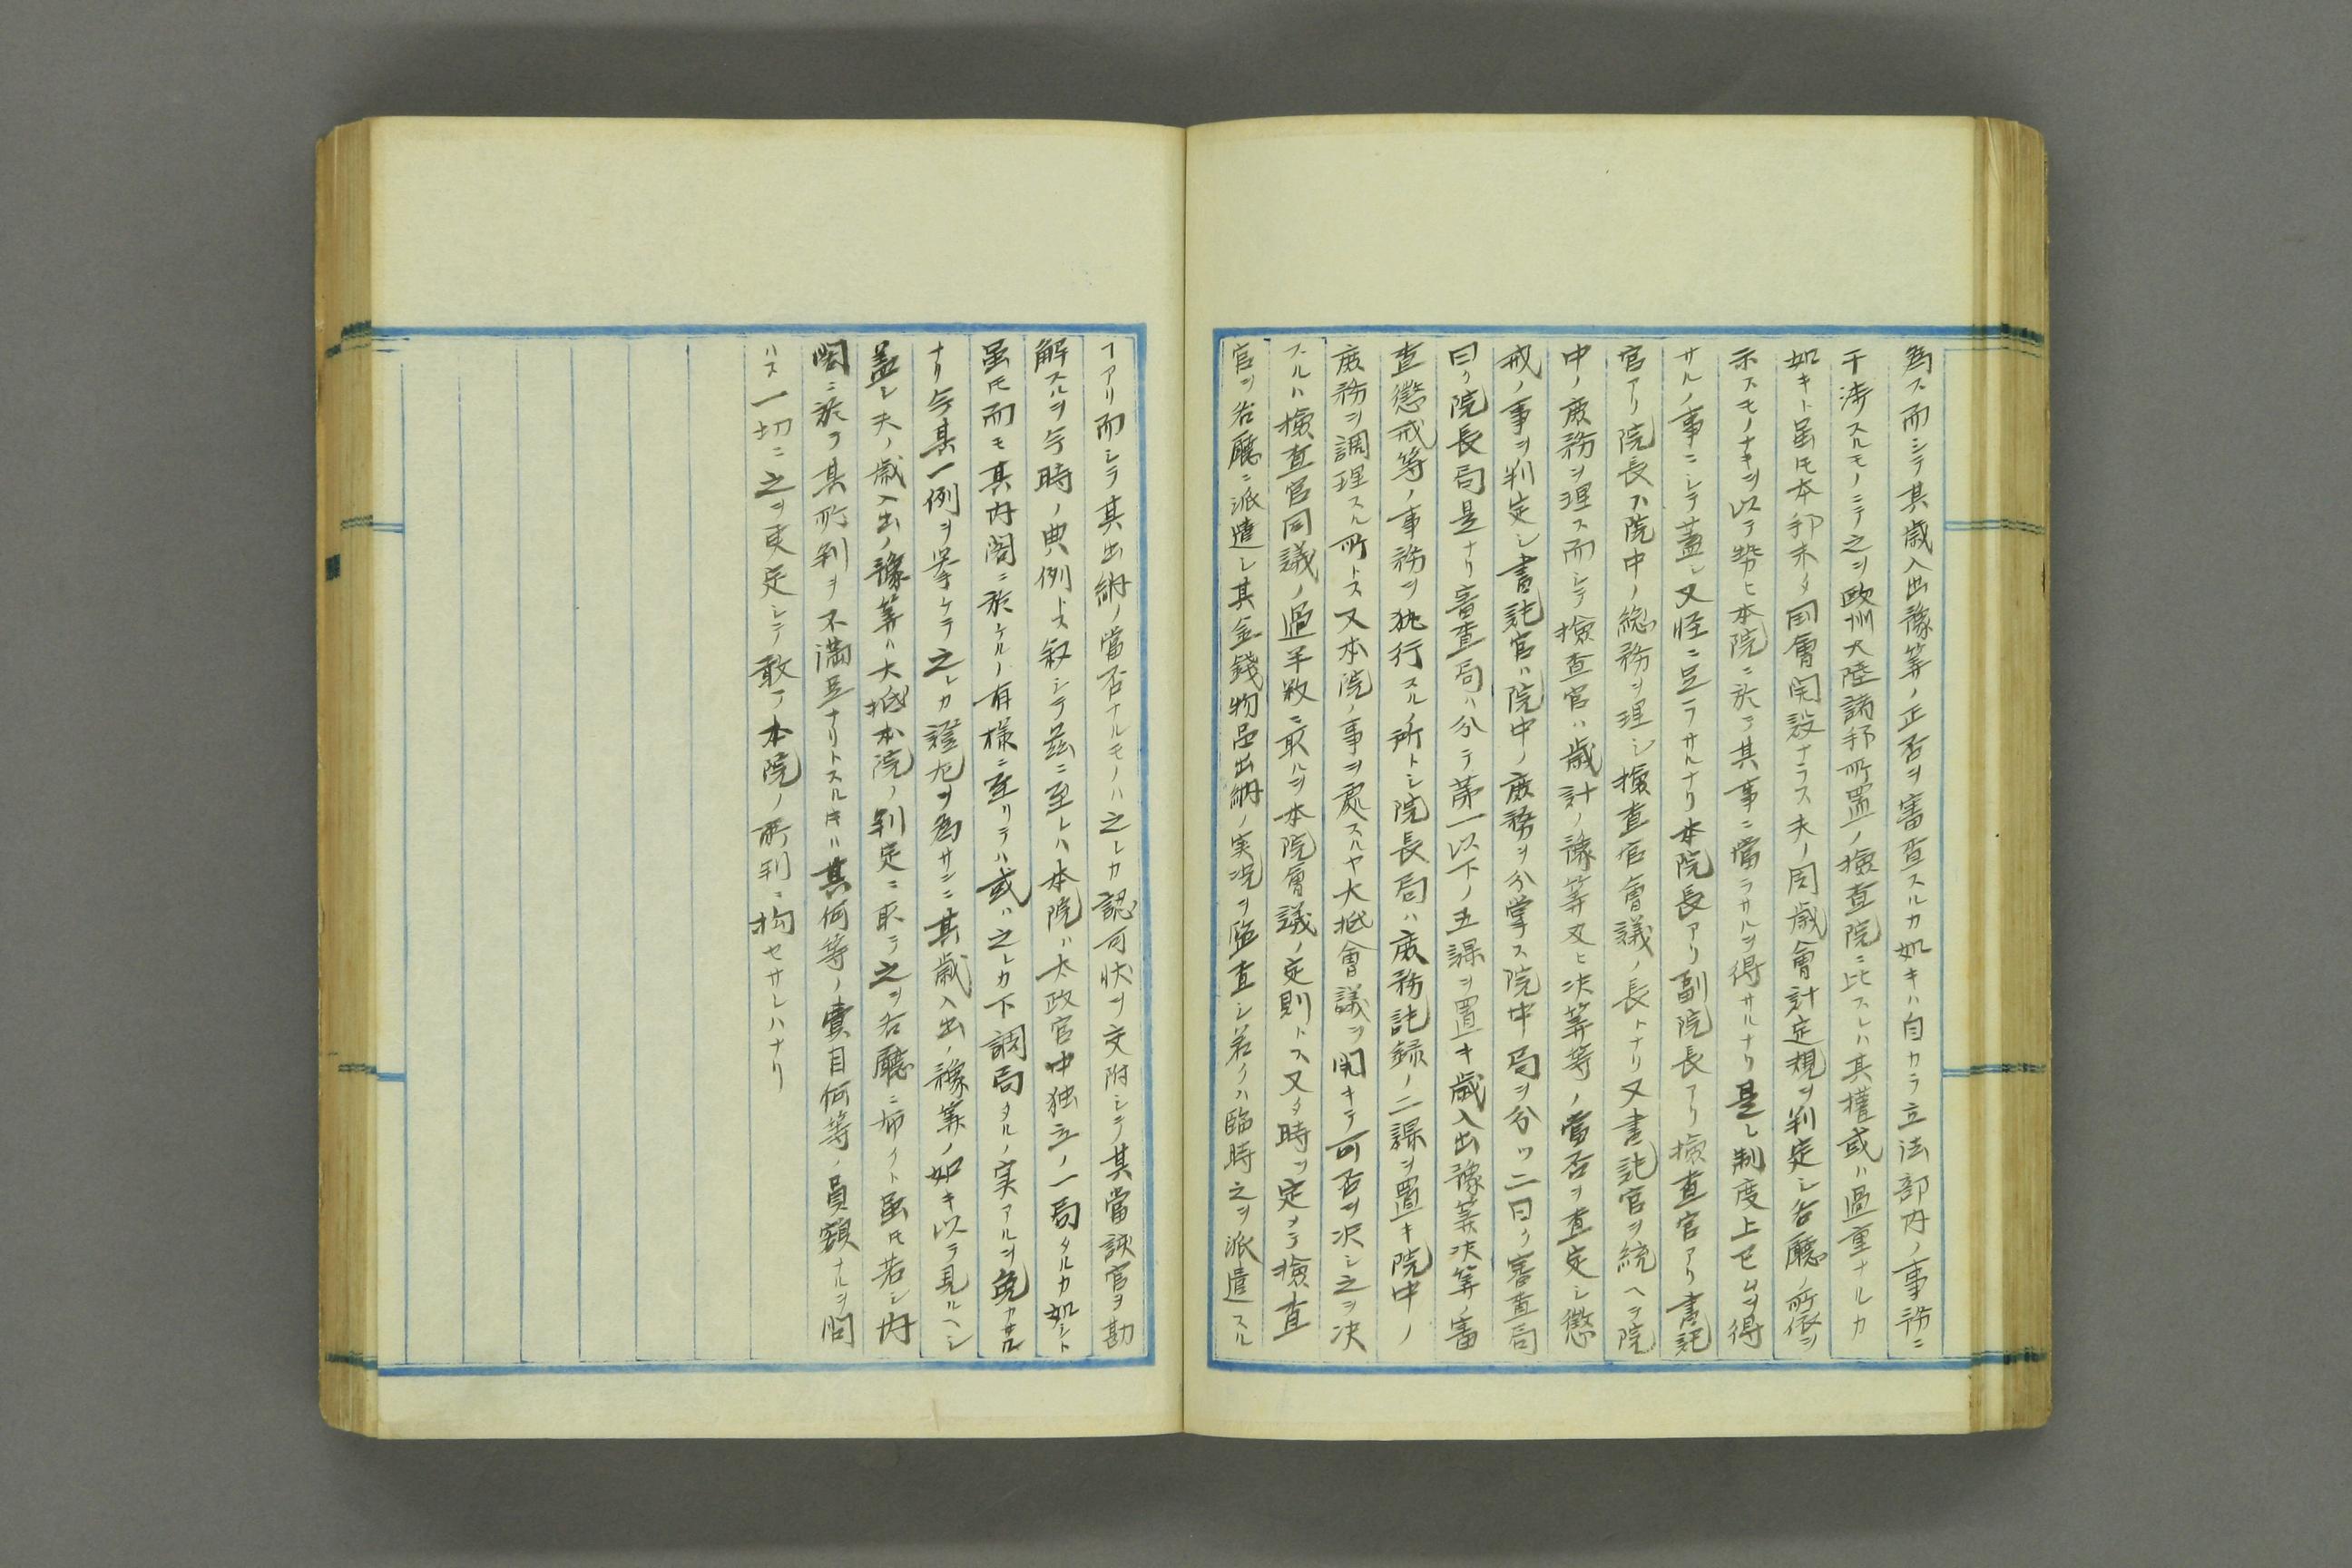 為ス而シテ其歳入出豫算ノ正否ヲ審査スルカ如キハ自カラ立法部内ノ事務ニ
干渉スルモノニテ之ヲ欧洲大陸諸邦所置ノ検査院ニ比スレハ其権或ハ過重ナルカ
如キト虽𪜈本邦未タ国會開設ナラス夫ノ周歳會計定規ヲ判定シ各廳ノ所依ヲ
示スモノナキヲ以テ勢ヒ本院ニ於テ其事ニ當ラサルヲ得サルナリ是レ制度上已ムヲ得
サルノ事ニシテ蓋シ又怪ニ足ラサルナリ本院長アリ副院長アリ検査官アリ書記
官アリ院長ハ院中ノ総務ヲ理シ検査官會議ノ長トナリ又書記官ヲ統ヘテ院
中ノ庶務ヲ理ス而シテ検査官ハ歳計ノ豫算及ヒ决算等ノ當否ヲ査定シ懲
戒ノ事ヲ判定シ書記官ハ院中ノ庶務ヲ分掌ス院中局ヲ分ツ二曰ク審査局
曰ク院長局是ナリ審査局ハ分テ第一以下ノ五課ヲ置キ歳入出豫算决算ノ審
査懲戒等ノ事務ヲ执行スル所トシ院長局ハ庶務記録ノ二課ヲ置キ院中ノ
庶務ヲ調理スル所トス又本院ノ事ヲ處スルヤ大抵會議ヲ開キテ可否ヲ决シ之ヲ决
スルハ検査官同議ノ過半数ニ取ルヲ本院會議ノ定則トス又タ時ヲ定メテ検査
官ヲ各廳ニ派遣シ其金銭物品出納ノ実况ヲ監査シ若クハ臨時之ヲ派遣スル
ヿアリ而シテ其出納ノ當否ナルモノハ之レカ認可状ヲ交附シテ其當該官ヲ勘
解スルヲ今時ノ典例トス叙シテ茲ニ至レハ本院ハ太政官中独立ノ一局タルカ如シト
虽𪜈而モ其内閣ニ於ケルノ有様ニ至リテハ或ハ之レカ下調局タルノ実アルヲ免カサル
ナリ今其一例ヲ挙ケテ之レカ證左ヲ為サンニ其歳入出ノ豫算ノ如キ以テ見ルヘシ
蓋シ夫ノ歳入出ノ豫算ハ大抵本院ノ判定ニ取テ之ヲ各廳ニ布クト虽𪜈若シ内
閣ニ於テ其所判ヲ不満足ナリトスル𪜈ハ其何等ノ費目何等ノ員額ナルヲ問
ハス一切ニ之ヲ更定シテ敢テ本院ノ所判ニ拘セサレハナリ